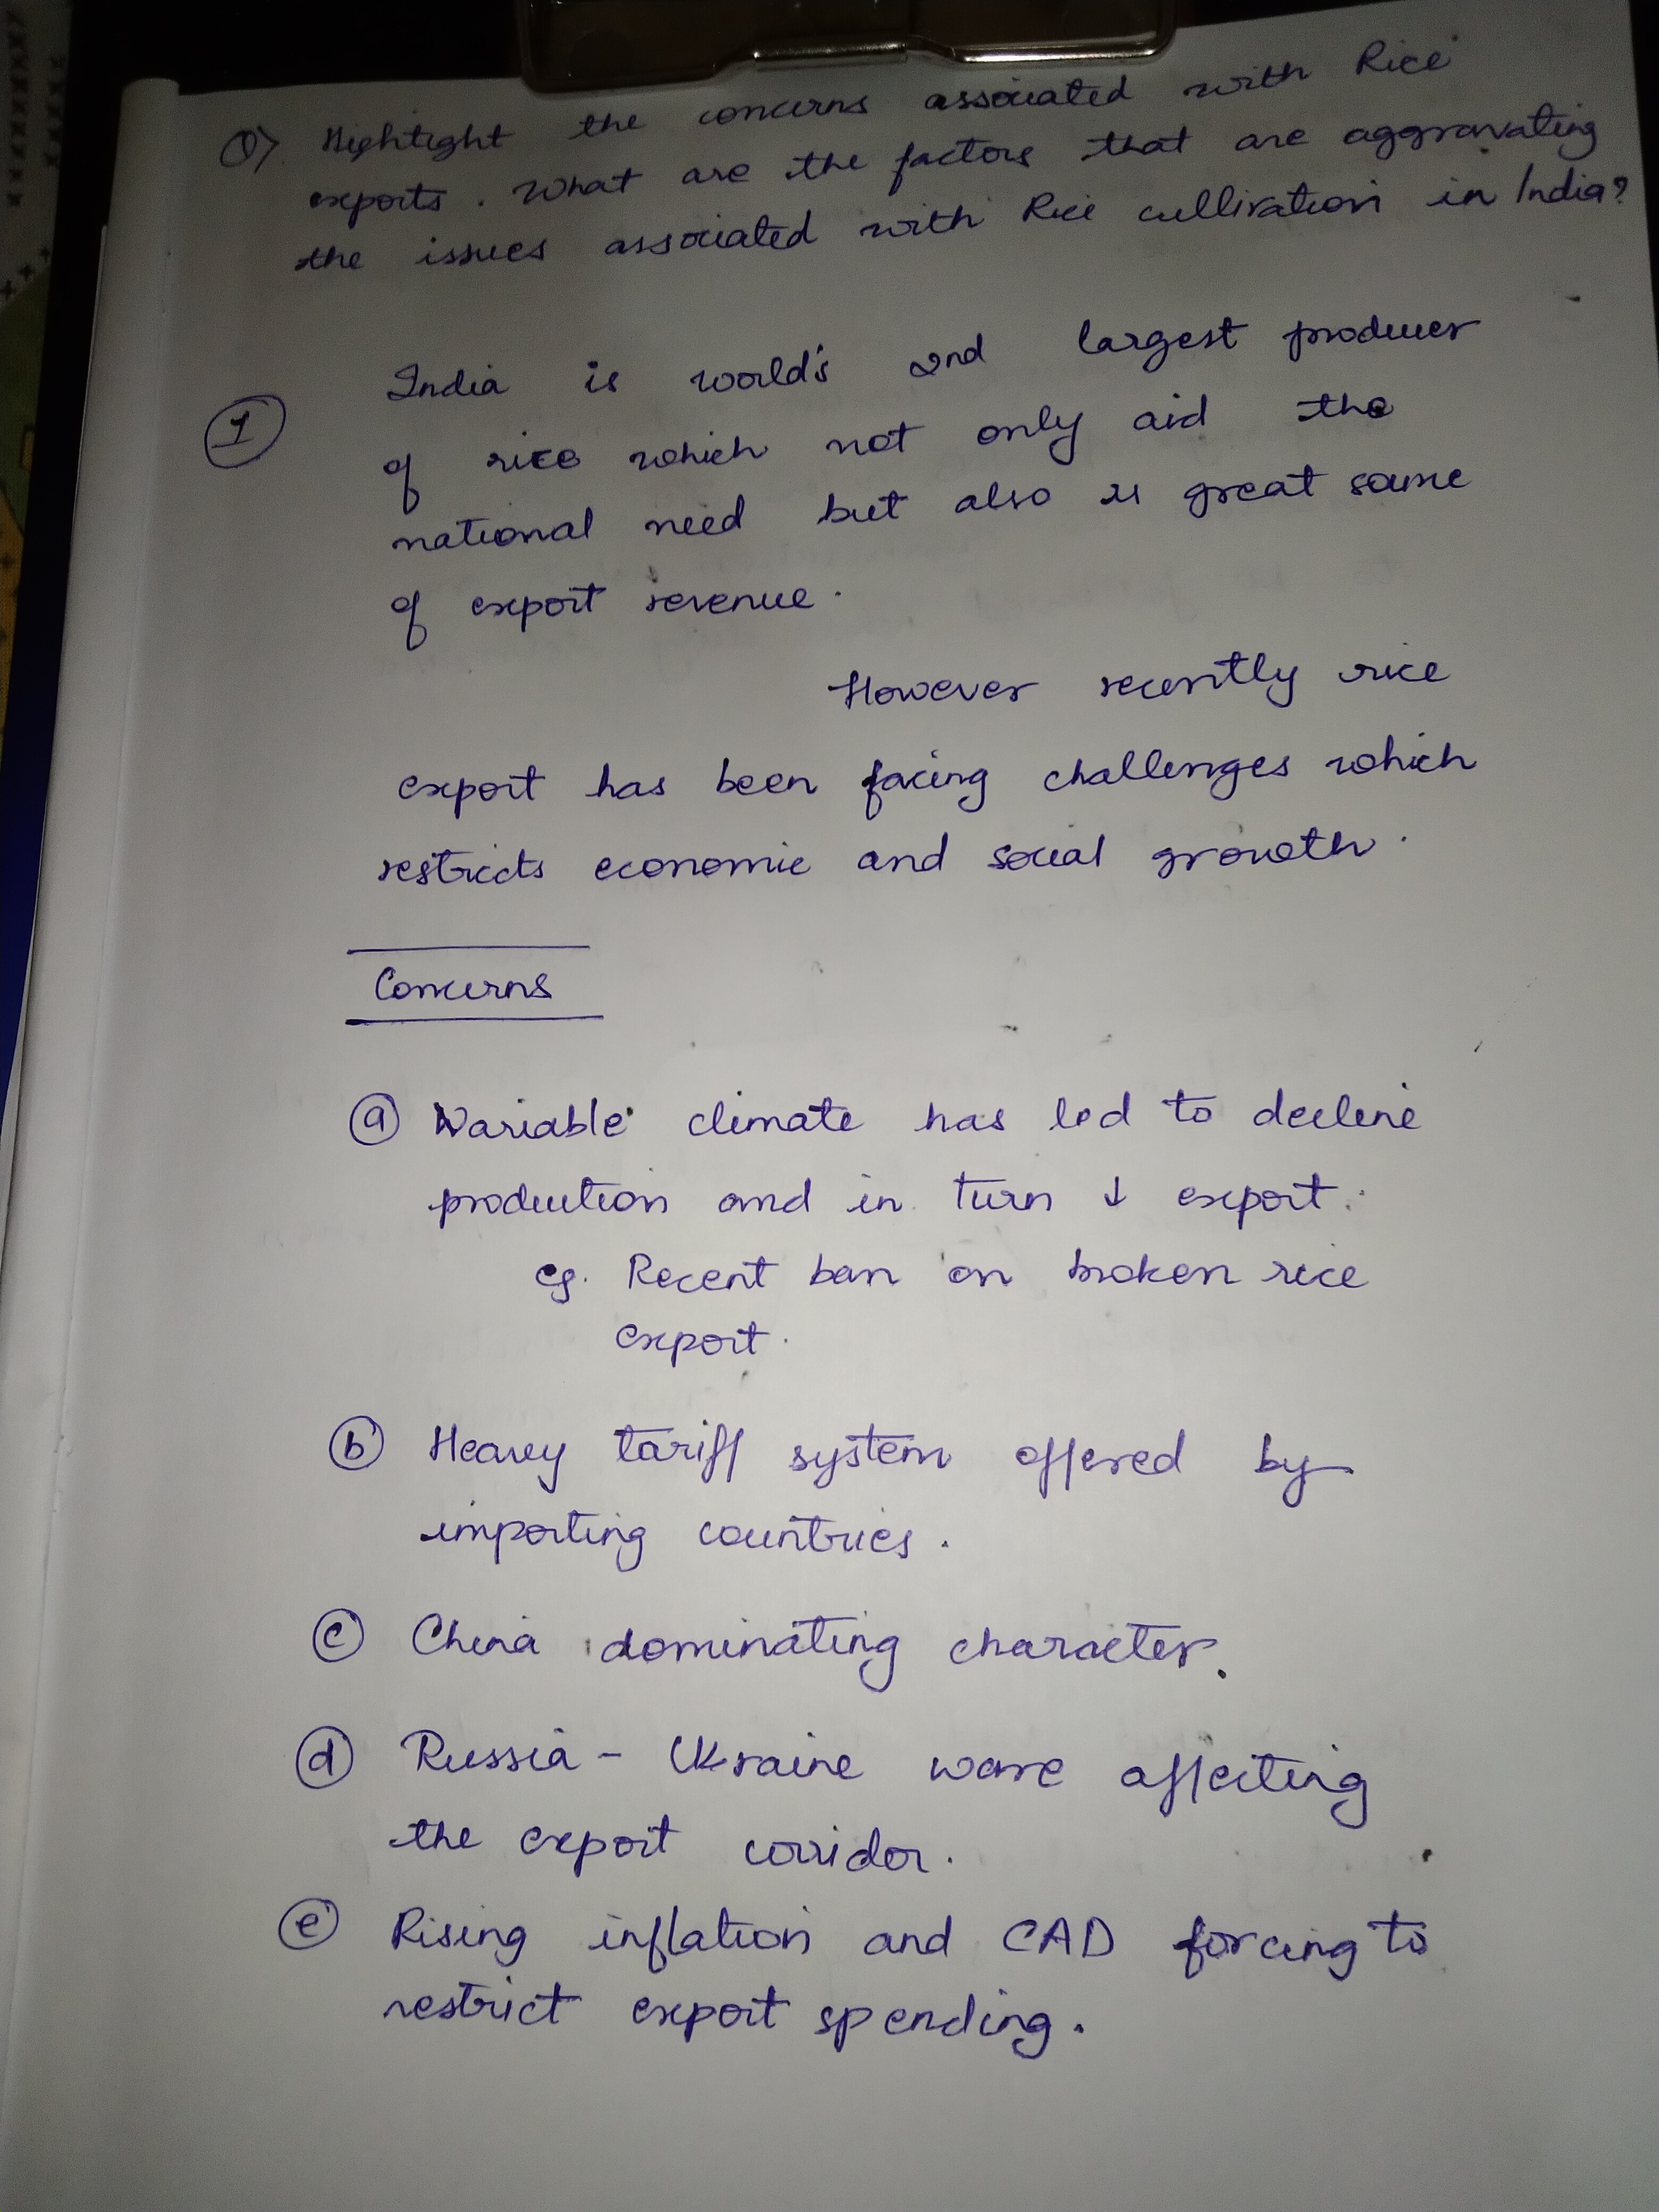 Q) Highlight the concerns associated with Rice
exports. What are the factors that are aggravating
the issues associated with Rice cultivation in India?
1 India is world's 2nd largest producer
of rice which not only aid the
national need but also is great source
of export revenue.
However recently rice
export has been facing challenges which
restricts economic and social growth.
Concerns
a Variable climate has led to decline
production and in turn ↓ export.
eg. Recent ban on broken rice
export.
b Heavy tariff system offered by
importing countries.
c China dominating character.
d Russia - Ukraine ware affecting
the export corridor.
e Rising inflation and CAD forcing to
restrict export spending.